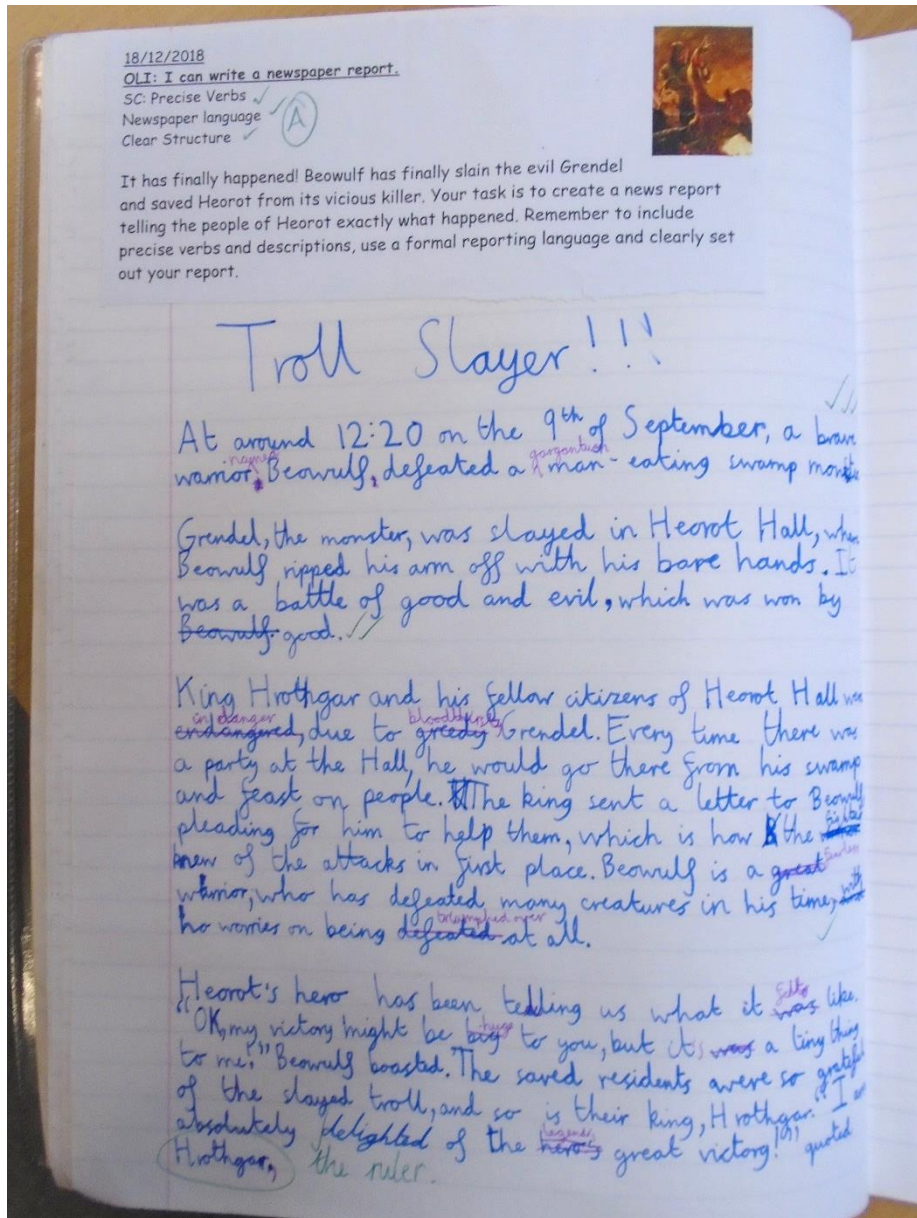 18/12/2018
OLI: I can write a newspaper report.
SC: Precise Verbs ✓
Newspaper language ✓
Clear Structure ✓
A
It has finally happened! Beowulf has finally slain the evil Grendel
and saved Heorot from its vicious killer. Your task is to create a news report
telling the people of Heorot exactly what happened. Remember to include
precise verbs and descriptions, use a formal reporting language and clearly set
out your report.
Troll Slayer!!!
At around 12:20 on the 9th of September, a brave
named gargantuan
warrior, Beowulf, defeated a man-eating swamp
Grendel, the monster, was slayed in Heorot Hall, when
Beowulf ripped his arm off with his bare hands. It
was a battle of good and evil, which was won by
Beowulf good.
King Hrothgar and his fellow citizens of Heorot Hall were
in danger bloodthirsty
endangered, due to greedy Grendel. Every time there was
a party at the Hall, he would go there from his swamp
and feast on people. The king sent a letter to Beowulf
pleading for him to help them, which is how the
knew of the attacks in first place. Beowulf is a great
warrior, who has defeated many creatures in his time,
triumphed over
no worries on being defeated at all.
Heorot's hero has been telling us what it was like.
felt
"OK, my victory might be big to you, but it was a tiny thing
huge
to me!" Beowulf boasted. The saved residents were so grateful
of the slayed troll, and so is their king, Hrothgar. "I am
absolutely delighted of the hero's great victory!" quoted
legends
Hrothgar, the ruler.